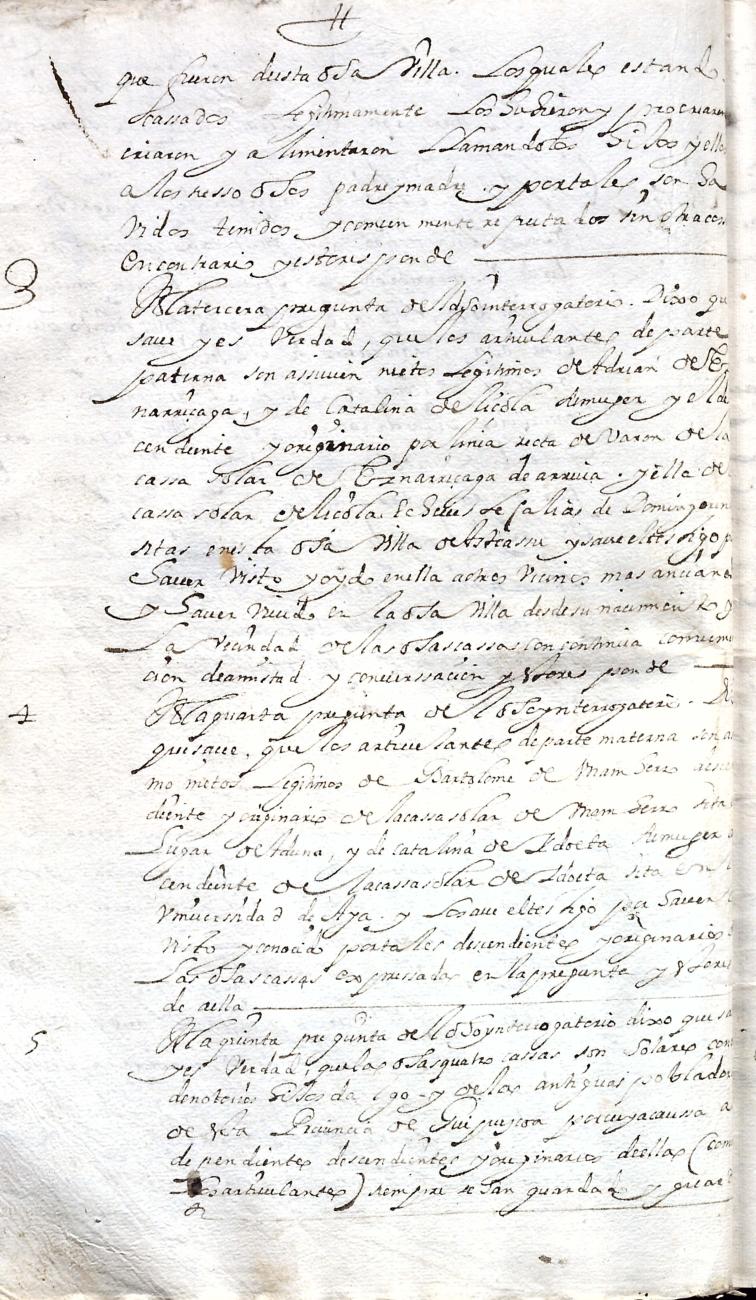 que fueron desta dha Villa. Los quales estand
cassados Legitimamente Los hubieron y procrearon
criaron y alimentaron Llamandolos hijos y ellos
a los nesso dhos padre y madre. y portales son ha
vidos tenidos y comun mente reputados sin otra cosa
en contrario y esto responde
3 A la tercera pregunta del dho interrogatorio. Dixo qu
save y es Verdad, que los articulantes de parte
paterna son assi vien nietos Legitimos de Adrian de Er
narriçaga, y de Catalina de liçola su muger y el de
cendiente y originario por linia recta de Varon de la
cassa solar de Ernarriçaga de arriva. y ella de
cassa solar de liçola Echeveste (alias de Domingo
sitas en esta dha Villa de Asteassu y save el testigo p
haver Visto y oydo en ella a otros Vecinos mas ancianos
y haver vivido en la dha Villa desde su nacimiento y
La Vecindad de las dhas cassas con continua comuni
cion de amistad y converssacion y esto responde
4 A la quarta pregunta del dho ynterrogatorio. Di
que save, que los articulantes de parte materna son a
mo nietos Legitimos de Bartolome de Mamberro desce
diente y originario de la cassa solar de Mamberro sita
Lugar de Aduna, y de Catalina de Ydoeta su muger
cendiente de la cassa solar de Ydoeta sita en l
Vniverssidad de Aya. y lo save el testigo por haver l
visto y conocido portales descendientes y originarios d
Las dhas cassas expressadas en la pregunta y esto res
de a ella
5 A la quinta pregunta del dho ynterrogatorio dixo que sa
y es Verdad, que las dhas quatro cassas son Solares con
de notorios hijos dalgo y de los antiguos poblador
de esta Provincia de Guipuzcoa por cuya caussa a
dependientes descendientes y originarios de ellas (com
Los articulantes) siempre se han guardado y guard